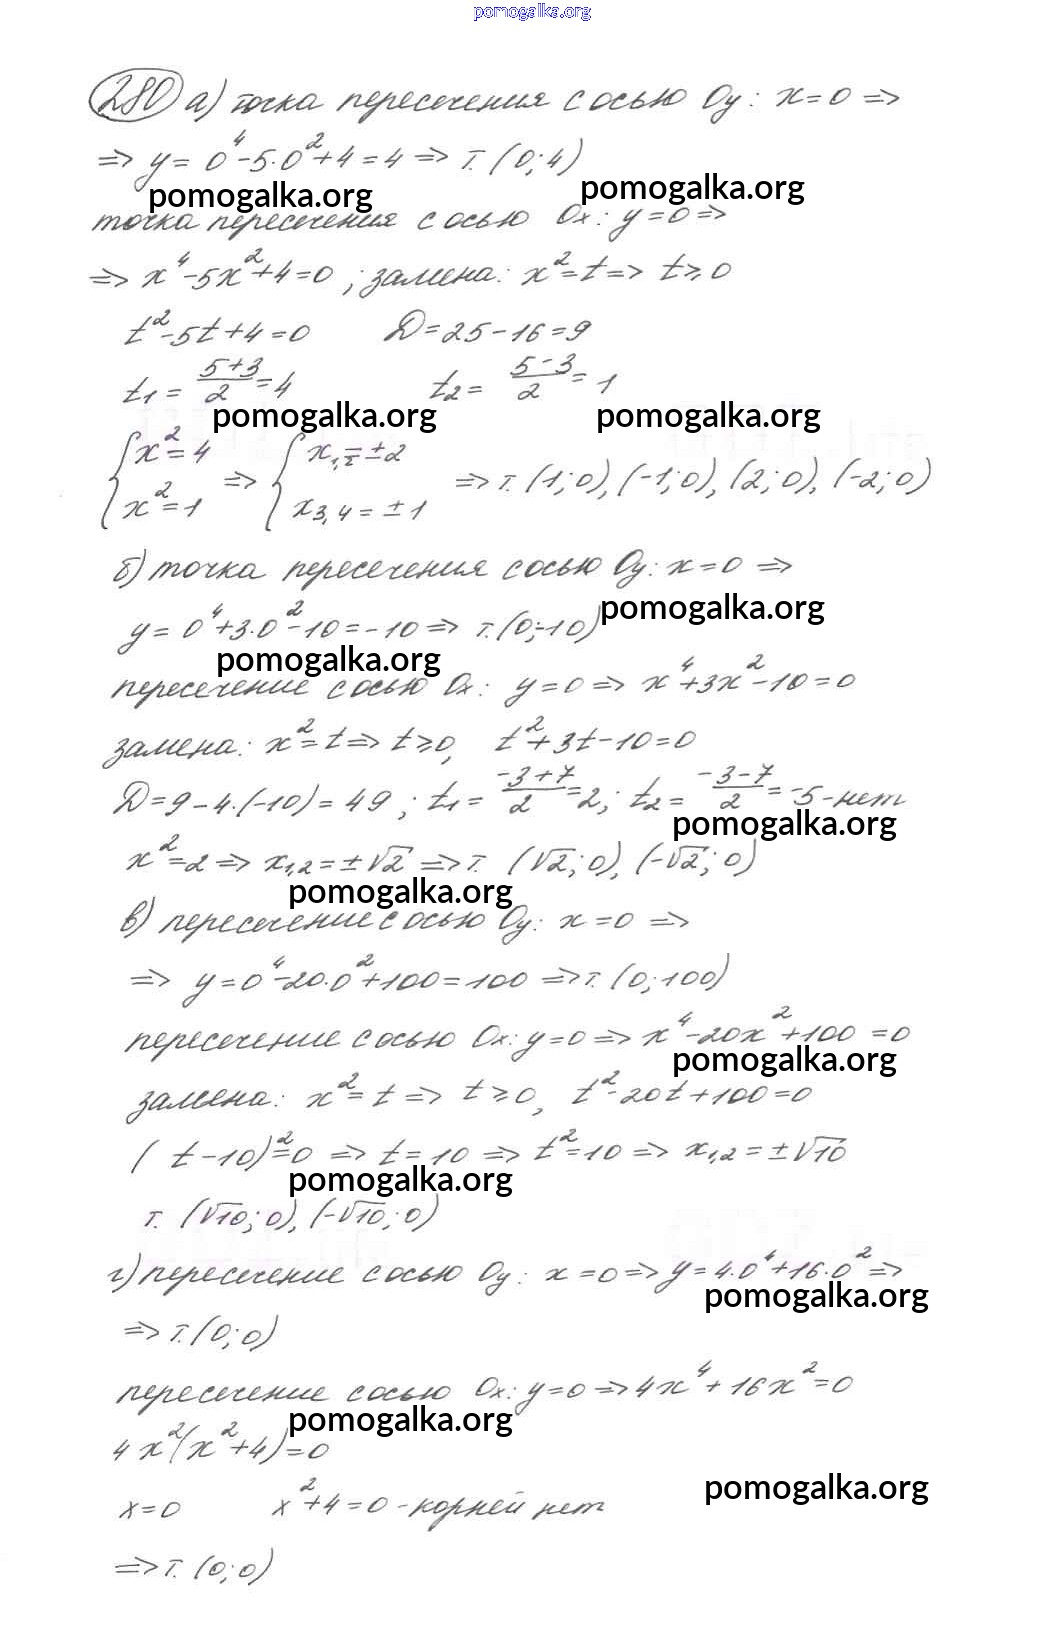 pomogalka.org
280 а) точка пересечения с осью Oy: x=0 =>
=> y = 0⁴-5·0²+4=4 => т. (0;4)
pomogalka.org pomogalka.org
точка пересечения с осью Ox: y=0 =>
=> x⁴-5x²+4=0 ; замена: x²=t => t≥0
t²-5t+4=0 D=25-16=9
t₁ = (5+3)/2 = 4 t₂ = (5-3)/2 = 1
pomogalka.org pomogalka.org
{ x²=4 => { x₁,₂=±2 => т. (1;0), (-1;0), (2;0), (-2;0)
{ x²=1 { x₃,₄=±1
б) точка пересечения с осью Oy: x=0 =>
y = 0⁴+3·0²-10=-10 => т. (0;-10)
pomogalka.org
pomogalka.org
пересечение с осью Ox: y=0 => x⁴+3x²-10=0
замена: x²=t => t≥0, t²+3t-10=0
D=9-4·(-10)=49 ; t₁ = (-3+7)/2 = 2; t₂ = (-3-7)/2 = -5 - нет
pomogalka.org
x²=2 => x₁,₂=±√2 => т. (√2;0), (-√2;0)
pomogalka.org
в) пересечение с осью Oy: x=0 =>
=> y=0⁴-20·0²+100=100 => т. (0;100)
пересечение с осью Ox: y=0 => x⁴-20x²+100=0
pomogalka.org
замена: x²=t => t≥0, t²-20t+100=0
(t-10)²=0 => t=10 => t²=10 => x₁,₂=±√10
pomogalka.org
т. (√10;0), (-√10;0)
г) пересечение с осью Oy: x=0 => y=4·0⁴+16·0² =>
pomogalka.org
=> т. (0;0)
пересечение с осью Ox: y=0 => 4x⁴+16x²=0
pomogalka.org
4x²(x²+4)=0
pomogalka.org
x=0 x²+4=0 - корней нет
=> т. (0;0)